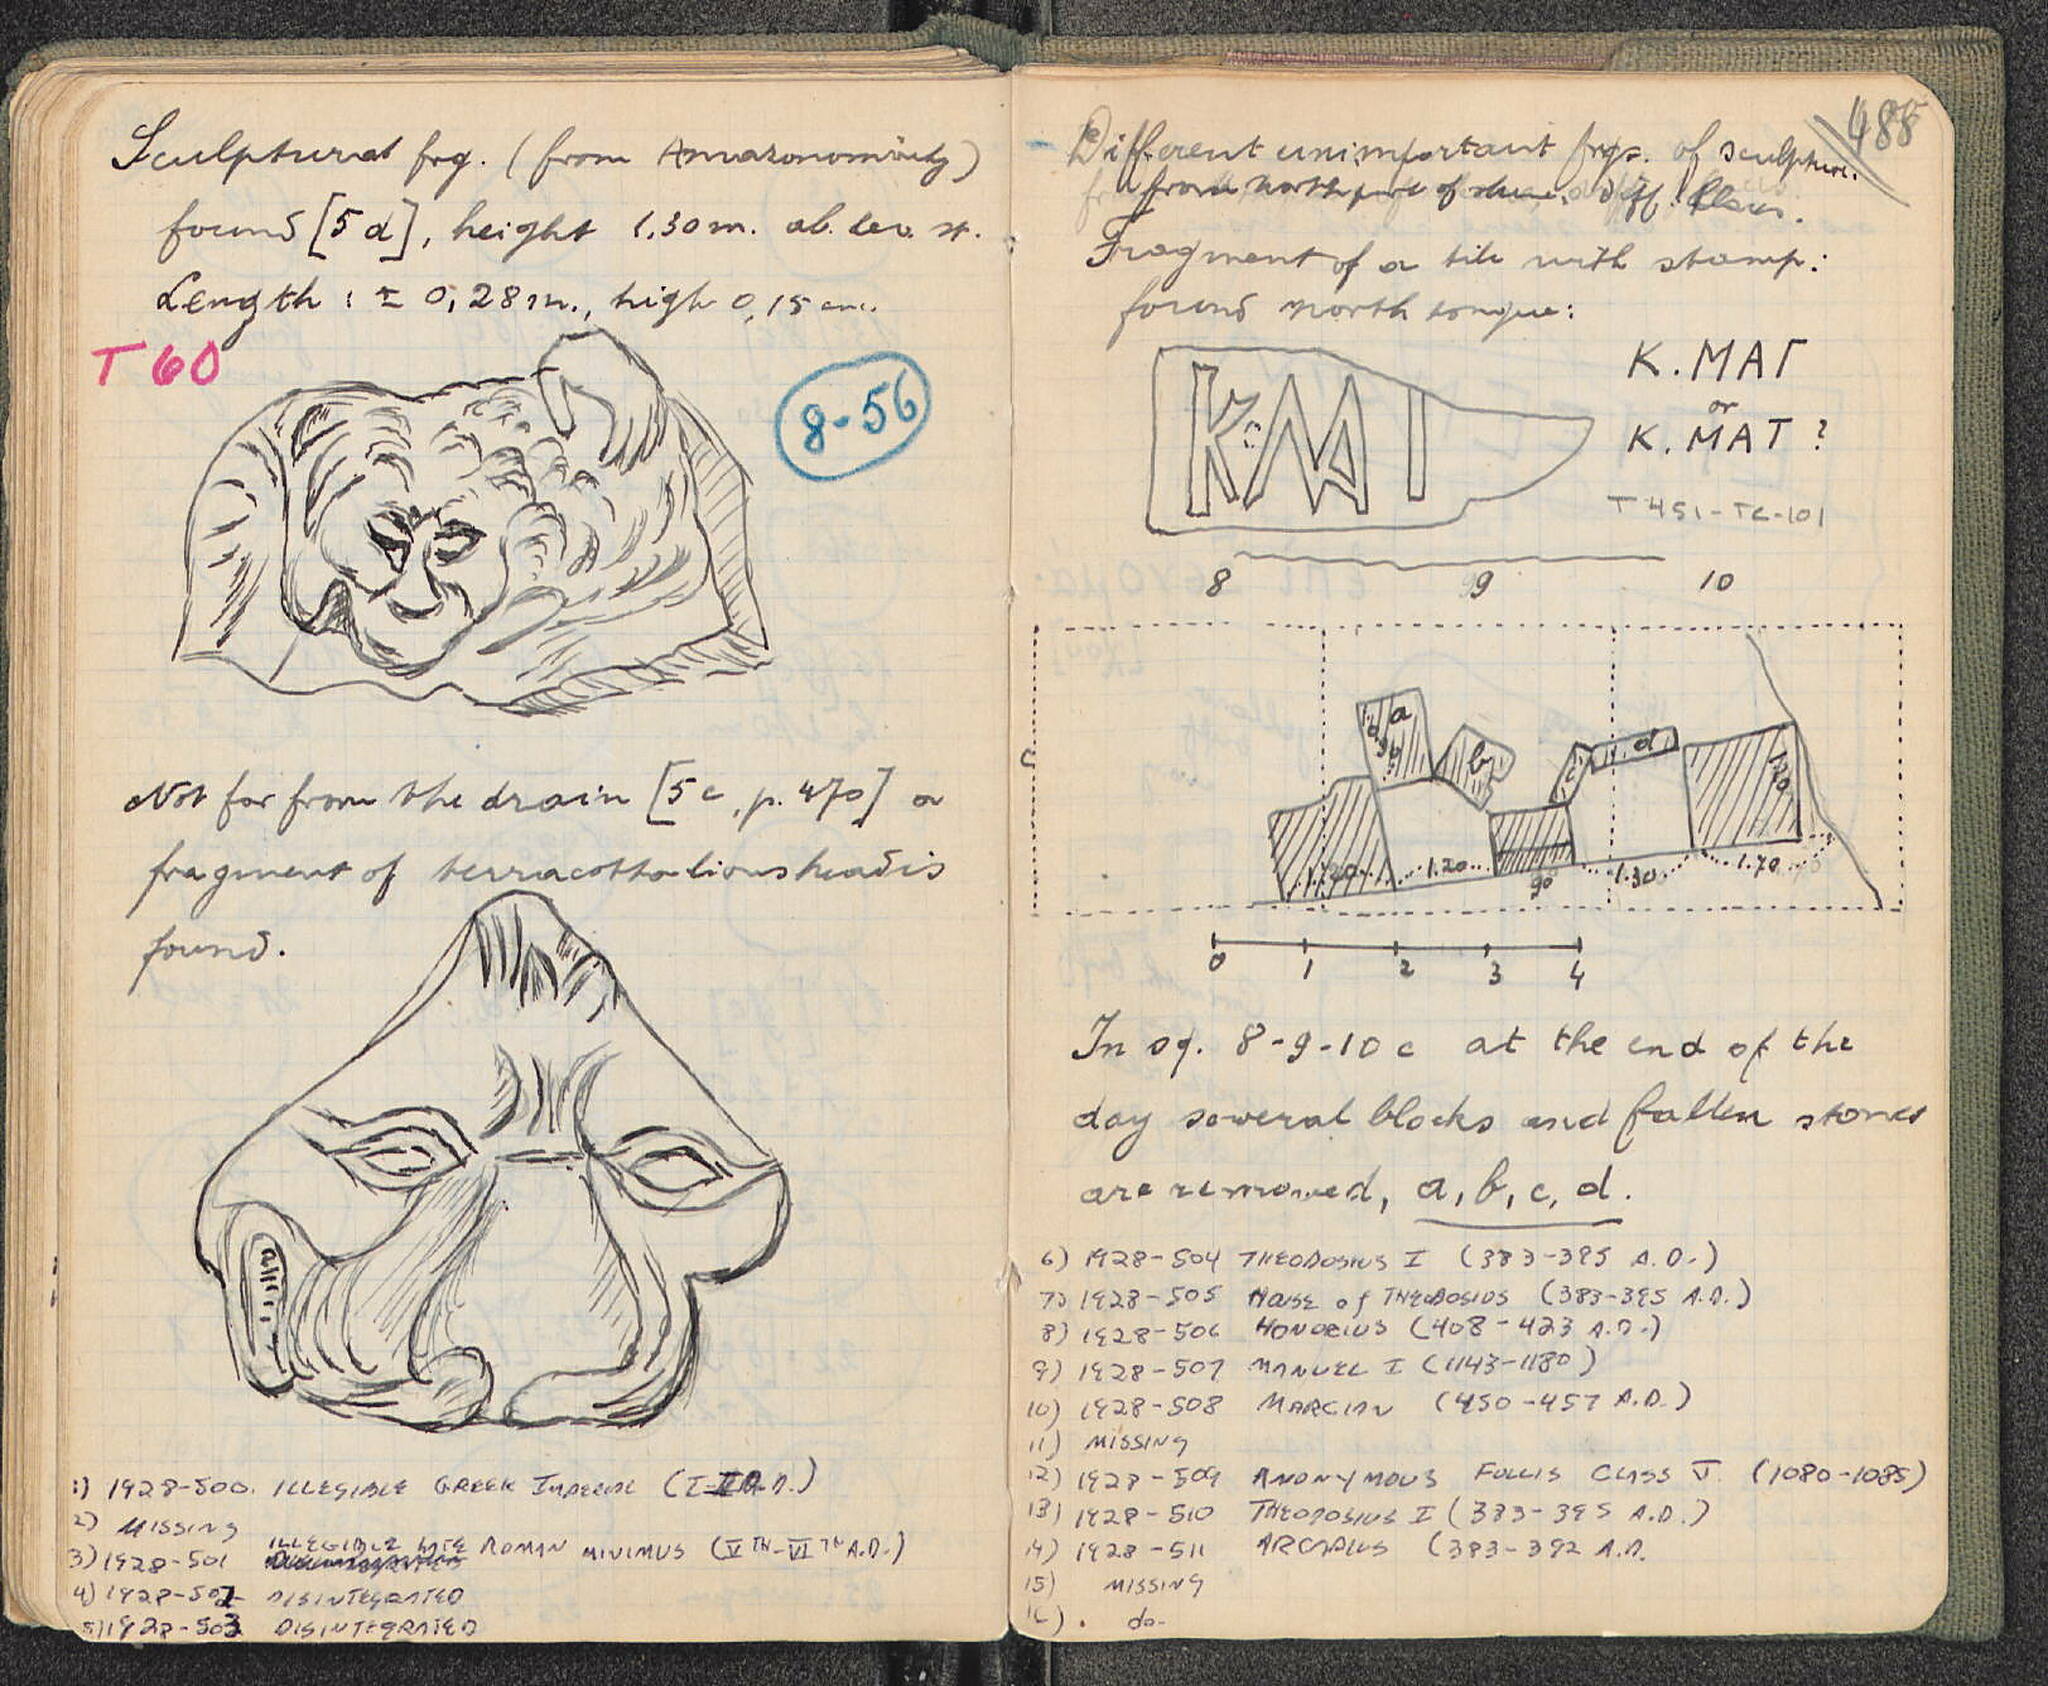 Sculptural frg. (from Amazonomachy)
found [5 d], height 1.30 m. ab. lev. st.
Length : ± 0,28 m., high 0,15 cm.
T 60
8-56
Not far from the drain [5 c, p. 470] a
fragment of terracotta lionshead is
found.
1) 1928-500. ILLEGIBLE GREEK IMPERIAL (I-III A.D.)
2) MISSING
3) 1928-501 ILLEGIBLE LATE ROMAN MINIMUS (V TH-VI TH A.D.)
4) 1928-502 DISINTEGRATED
5) 1928-503 DISINTEGRATED
488
Different unimportant frgs. of sculpture.
from north part of diff. places.
Fragment of a tile with stamp:
found north tongue:
K:MAT
K.MAΓ
or
K.MAT ?
T 451-TC-101
8 9 10
c
a 0.90 b c d 1.20
1.20 1.20 90 1.30 1.70
0 1 2 3 4
In sq. 8-9-10 c at the end of the
day several blocks and fallen stones
are removed, a, b, c, d.
6) 1928-504 THEODOSIUS I (383-395 A.D.)
7) 1928-505 HOUSE of THEODOSIUS (383-395 A.D.)
8) 1928-506 HONORIUS (408-423 A.D.)
9) 1928-507 MANUEL I (1143-1180)
10) 1928-508 MARCIAN (450-457 A.D.)
11) MISSING
12) 1928-509 ANONYMOUS FOLLIS CLASS V. (1080-1085)
13) 1928-510 THEODOSIUS I (383-395 A.D.)
14) 1928-511 ARCADIUS (383-392 A.D.
15) MISSING
16) . do-